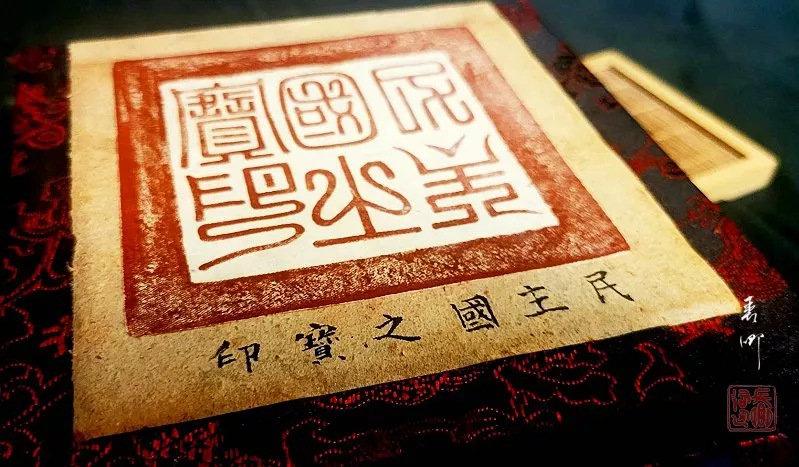 民主
國之
寶印
民主國之寶印